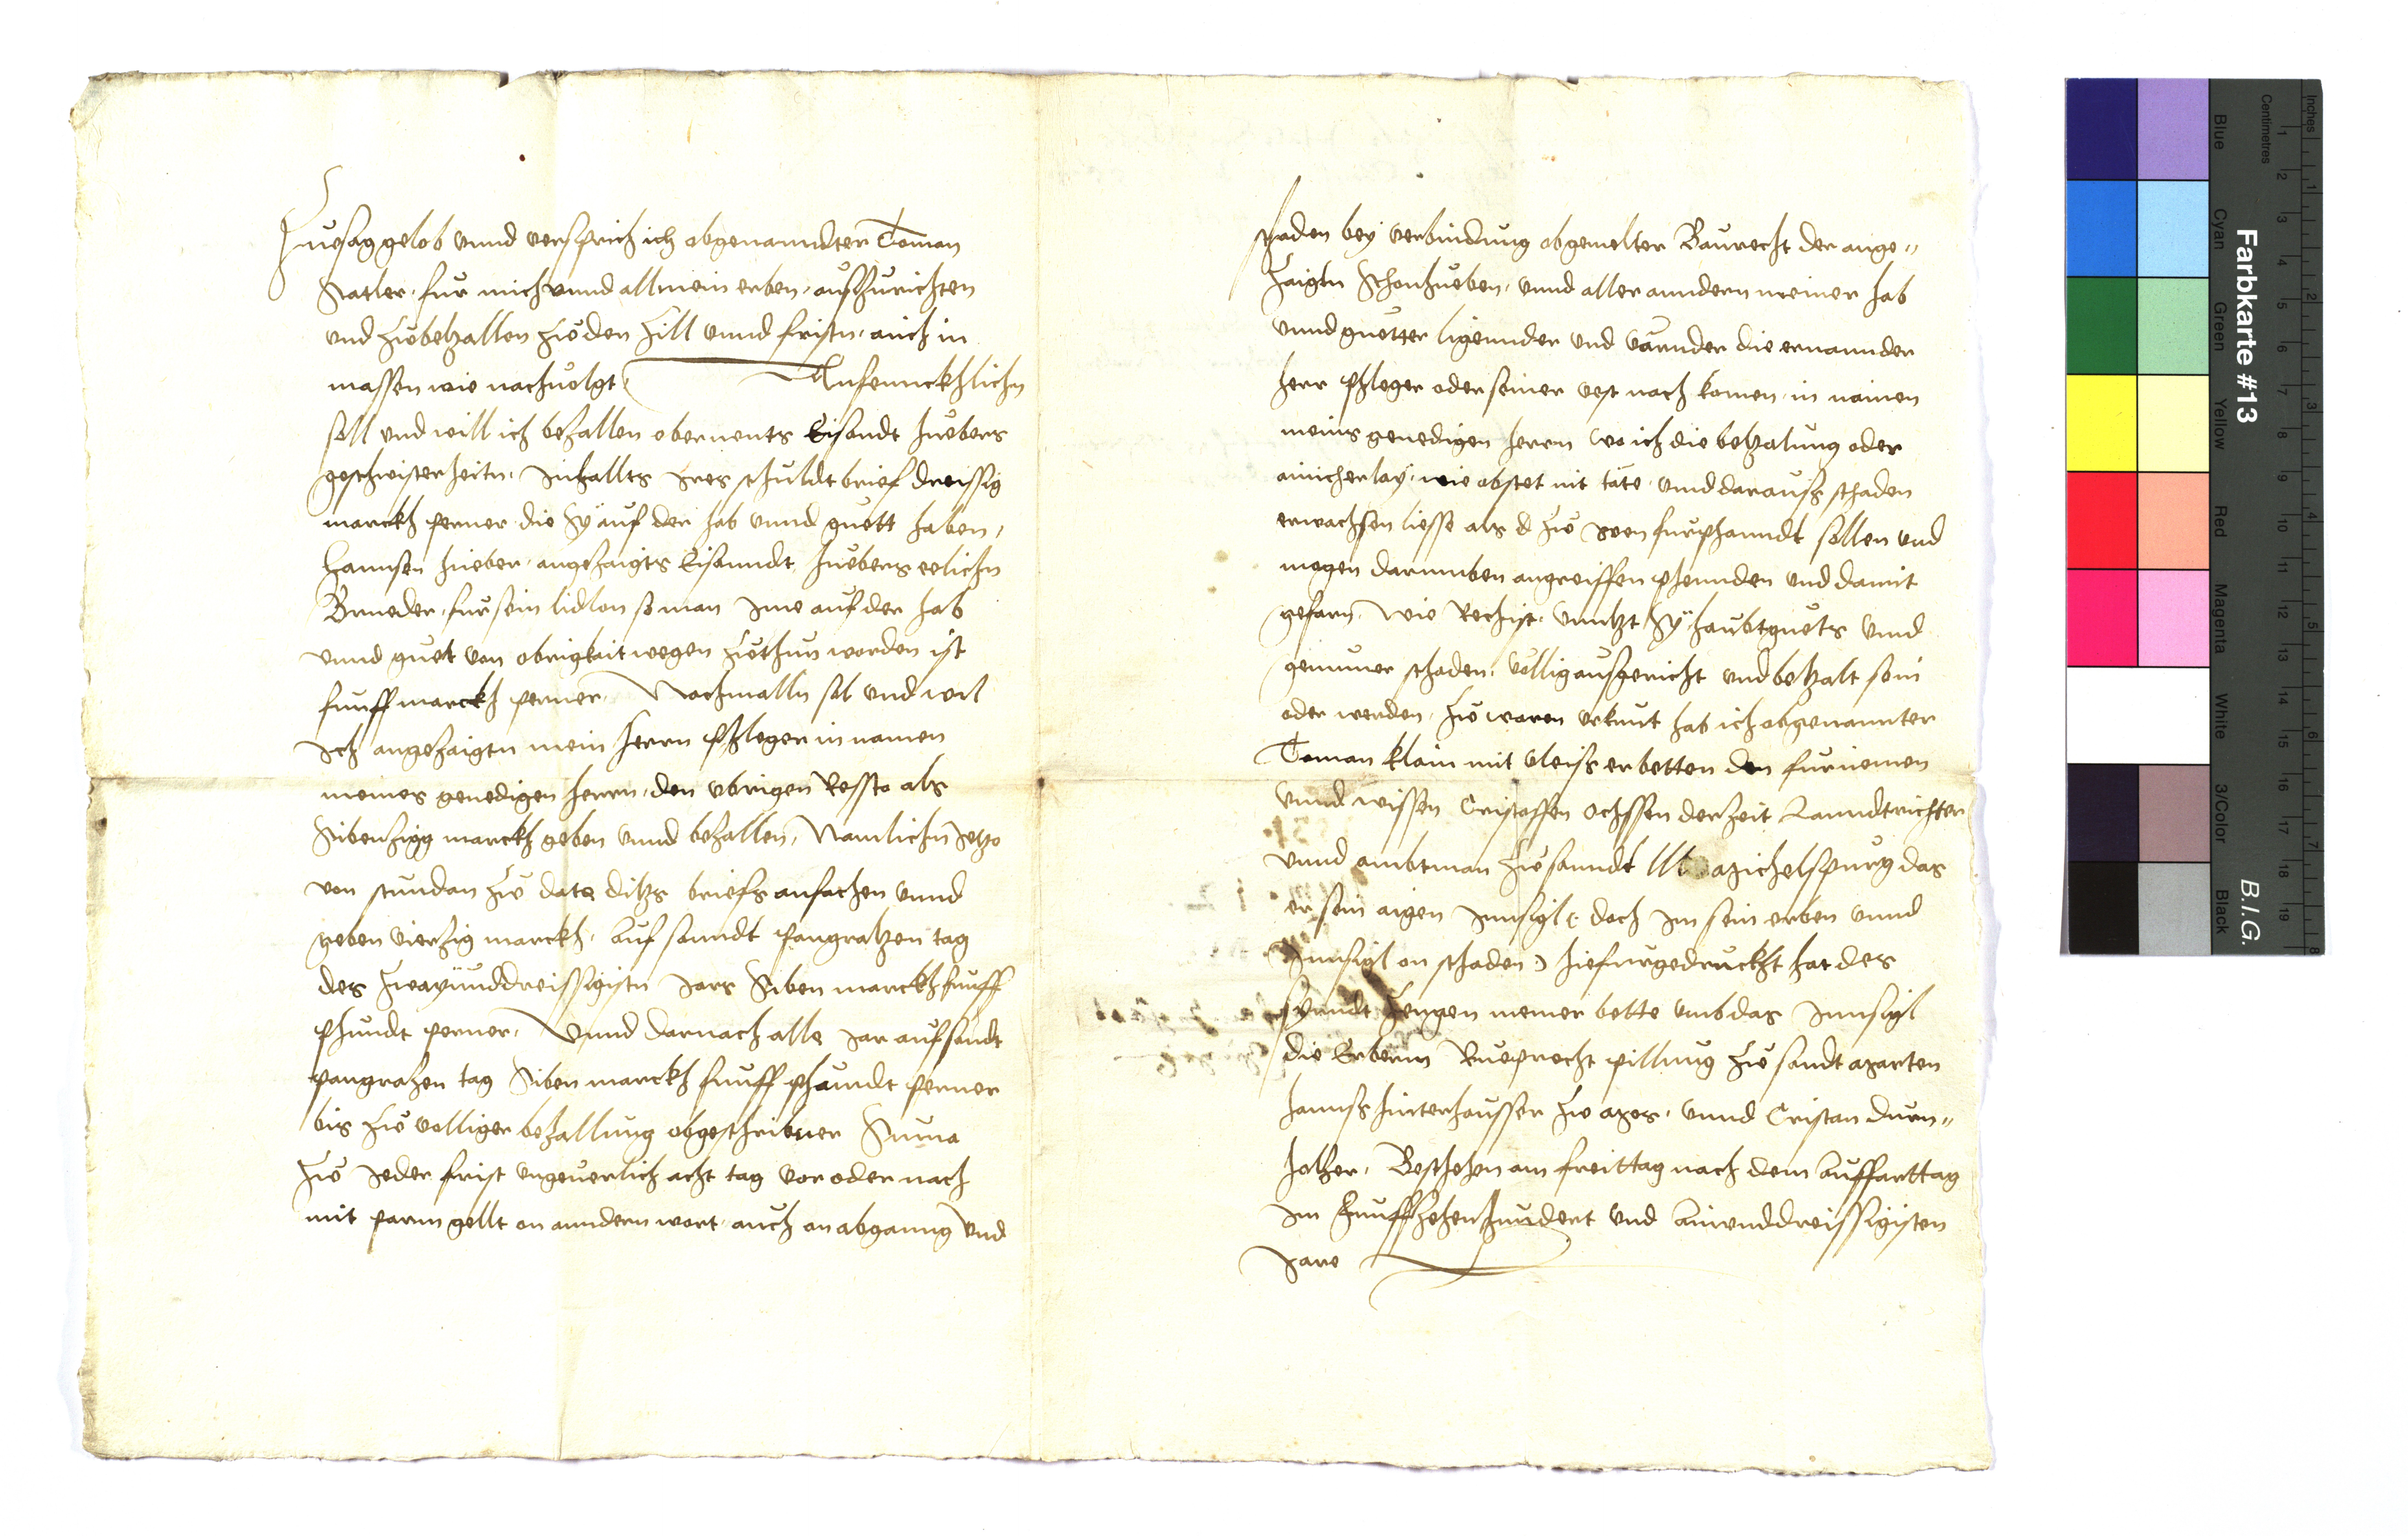 Zuesag gelob vnnd versprich ich obgenanndter Toman
Natler fur mich vnnd all mein erben, ausszurichten
vnd zubetzallen zu den zill vnnd fristn, auch in
massen wie nachuolgt Anfennckhlichn
soll vnd will ich bezallen obernents Lisandt Huebers
geschwisterheitn, Inhallts Ires schuldtbrief dreissig
marckh perner die Sy auf der hab vnnd guett haben,
Hannsen hueber, angezaigts Lisanndt Huebers eelichn
Brueder, fur sein lidlon so man Ime auf der hab
vnnd guet von obrigkait wegen zuthun worden ist
funff marckh perner, Nachmalln sol vnd wil
Ich angezaigtn mein herrn phleger in namen
meines genedigen herrn, den vbrigen Ressto als
Sibenzigg marckh geben vnnd bezallen, Namlichn Jetzo
von stundan zu dato ditzs briefs anfachen vnnd
geben vierzig marckh, auf sanndt pangratzen tag
des zwayunddreissigistn Jars Siben marckh funff
phundt perner, Vnnd darnach alle Jar auf sandt
pangrazen tag Siben marckh funff phundt perner
bis zu volliger bezallung obgeschribner Suma
zu Jeder frist vngeuerlich acht tag vor oder nach
mit parm gellt on anndern wort, auch on abganng vnd
schaden bey verbindung obgemelter Baurecht der ange"
zaigtn Schonhueben, vnnd aller anndern meiner hab
vnnd guetter ligennder vnd varnder die ernannder
herr phleger oder seiner vest nach komen, in namen
meins genedigen herrn wo ich die betzalung oder
ainicherlay, wie obstet nit täte, vnnd darauss schaden
erwachsen liesse als d zu Iren furphanndt sollen vnd
mogen darumben angreiffen phennden vnd damit
gefarn, wie Rechist, vnntzt Sy haubtguets vnnd
genumer schaden, völlig ausgericht vnd betzalt sein
oder werden, Zu waren vrkunt hab ich obgenannter
Toman klain mit vleiss erbetten den furnemen
vnnd wissen Cristoffen Ochssen der zeit Lanndtrichter
vnnd ambtman zu sanndt Michelspurg das
er sein aigen Innsigl (: doch Im sein erben vnnd
Innsigl on schaden :) hiefurgedruckht hat des
synndt Zeugen meiner bette vmb das Innsigl
die Erbern Rueprecht pillung zu sandt marten
hanns hinterhausser zu mos, vnnd Cristan durn"
holtzer, Beschehen am freittag nach dem auffarttag
Im Funffzehenhundert vnd ainunddreissigisten
Jare